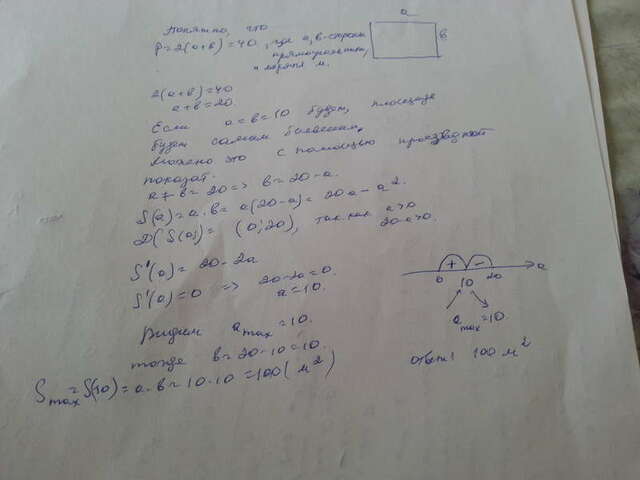 Понятно, что
P=2(a+b)=40, где a,b-стороны
прямоугольника,
a
b
2(a+b)=40
a+b=20.
Если a=b=10 будет, площадь
будет самым большим.
Можно это с помощью производной
показат.
a+b=20=> b=20-a.
S(a)=a·b=a(20-a)=20a-a².
D(S(a))=(0;20), так как a>0
20-a>0.
S'(a)=20-2a
S'(a)=0 => 20-2a=0.
a=10.
+ -
0 10 20 a
a max=10.
Видим a max=10.
тогда b=20-10=10.
S max=S(10)=a·b=10·10=100(м²)
Ответ: 100 м²